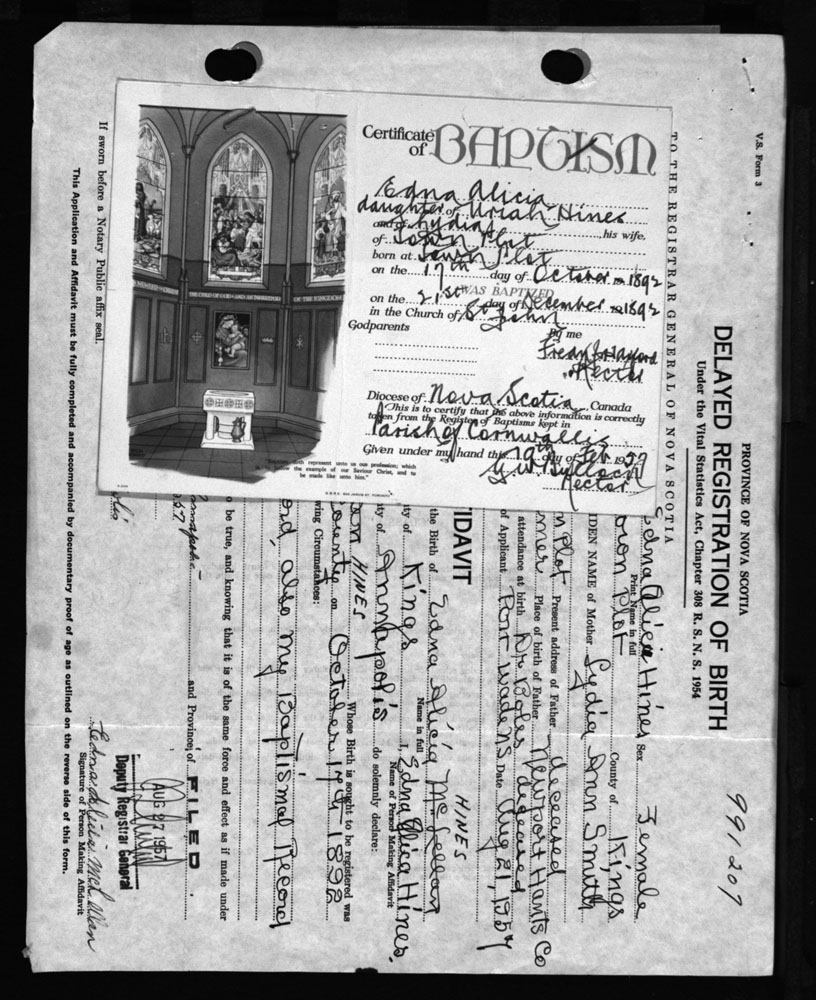 Certificate of BAPTISM
Edna Alicia
daughter of Uriah Hines
and of Lydia his wife,
of Town Plot
born at Town Plot
on the 17th day of October 1892
WAS BAPTIZED
on the 21st day of December 1892
in the Church of St John
Godparents
By me
Rector
Diocese of Nova Scotia, Canada
This is to certify that the above information is correctly
taken from the Register of Baptisms kept in
Parish of Cornwallis
Given under my hand this 19th day of Feb 1957
Rector
THE CHILD OF GOD AND AN INHERITOR OF THE KINGDOM
represent unto us our profession; which
the example of our Saviour Christ, and to
be made like unto him."
V.S. Form 3
PROVINCE OF NOVA SCOTIA
DELAYED REGISTRATION OF BIRTH
Under the Vital Statistics Act, Chapter 308 R. S. N. S. 1954
991207
TO THE REGISTRAR GENERAL OF NOVA SCOTIA
Edna Alicia Hines Sex Female
Print Name in full
Town Plot County of Kings
IDEN NAME of Mother Lydia Ann Smith
n Plot Present address of Father deceased
mer Place of birth of Father Newport Hants Co
attendance at birth Dr. Bogles deceased
of Applicant Port Wade N.S. Date Aug 21, 1957
IDAVIT
HINES
the Birth of Edna Alicia McLellan
Name in full
ty of Kings I, Edna Alica Hines.
Name of Person Making Affidavit
ty of Annapolis do solemnly declare:
HINES Whose Birth is sought to be registered was
on October 17th 1892
wing Circumstances:
ord, also my Baptismal Record
o be true, and knowing that it is of the same force and effect as if made under
and Province of
FILED
AUG 27 1957
Deputy Registrar General
Edna Alicia McLellan
Signature of Person Making Affidavit
If sworn before a Notary Public affix seal.
This Application and Affidavit must be fully completed and accompanied by documentary proof of age as outlined on the reverse side of this form.